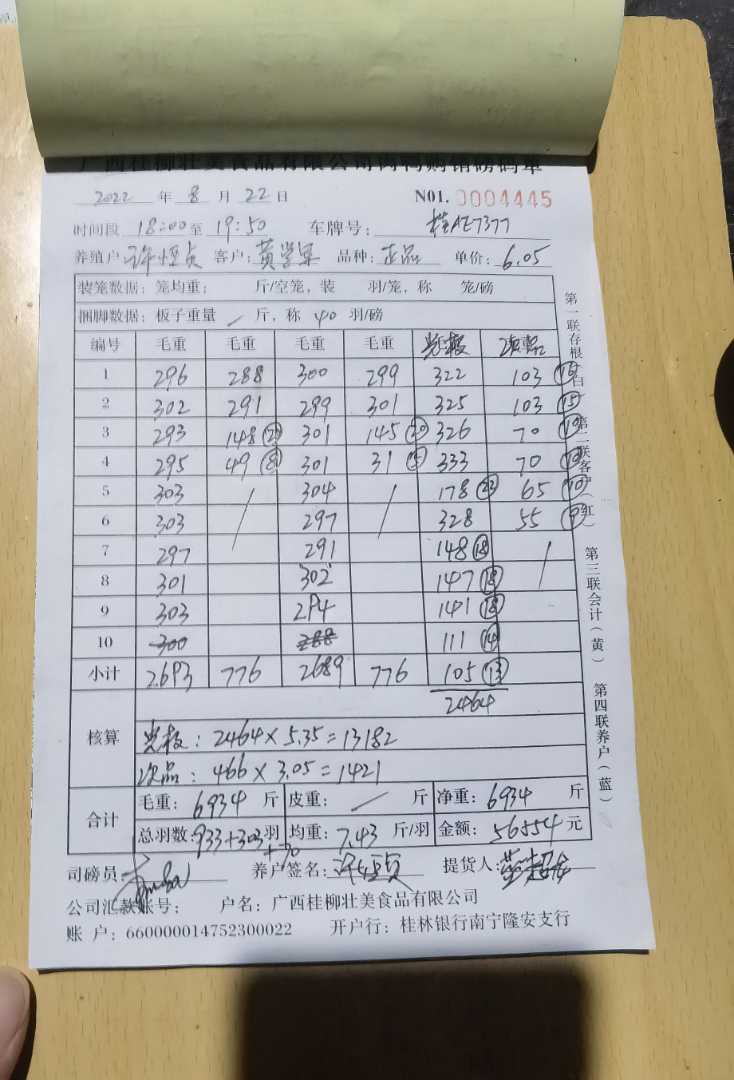 广西桂柳壮美食品有限公司肉鸭购销磅码单
2022 年 8 月 22 日 NO1. 0004445
时间段 18:00 至 19:50 车牌号: 桂AE7377
养殖户: 许恒贞 客户: 黄学军 品种: 正品 单价: 6.05
装笼数据: 笼均重: 斤/空笼, 装 羽/笼, 称 笼/磅
捆脚数据: 板子重量 / 斤, 称 40 羽/磅
编号 毛重 毛重 毛重 毛重 次品
1 296 288 300 299 322 103 ⑮
2 302 291 299 301 325 103 ⑮
3 293 148 301 145 ⑳ 326 70 ⑩
4 295 49 301 31 333 70 ⑩
5 303 / 304 / 178 ㉓ 65 ⑩
6 303 297 328 55 ⑨
7 297 291 148 ⑱ /
8 301 302 147 ⑱
9 303 294 141 ⑱
10 300 288 111 ⑭
小计 2693 776 2689 776 105 ⑬
2464
核算
2464×5.35=13182
次品: 466×3.05=1421
合计 毛重: 6934 斤 皮重: / 斤 净重: 6934 斤
总羽数: 933+303 羽 均重: 7.43 斤/羽 金额: 56554 元
+70
司磅员: 养户签名: 许恒贞 提货人:
公司汇款账号: 户名: 广西桂柳壮美食品有限公司
账 户: 660000014752300022 开户行: 桂林银行南宁隆安支行
第一联存根(白) 第二联客户(红) 第三联会计(黄) 第四联养户(蓝)